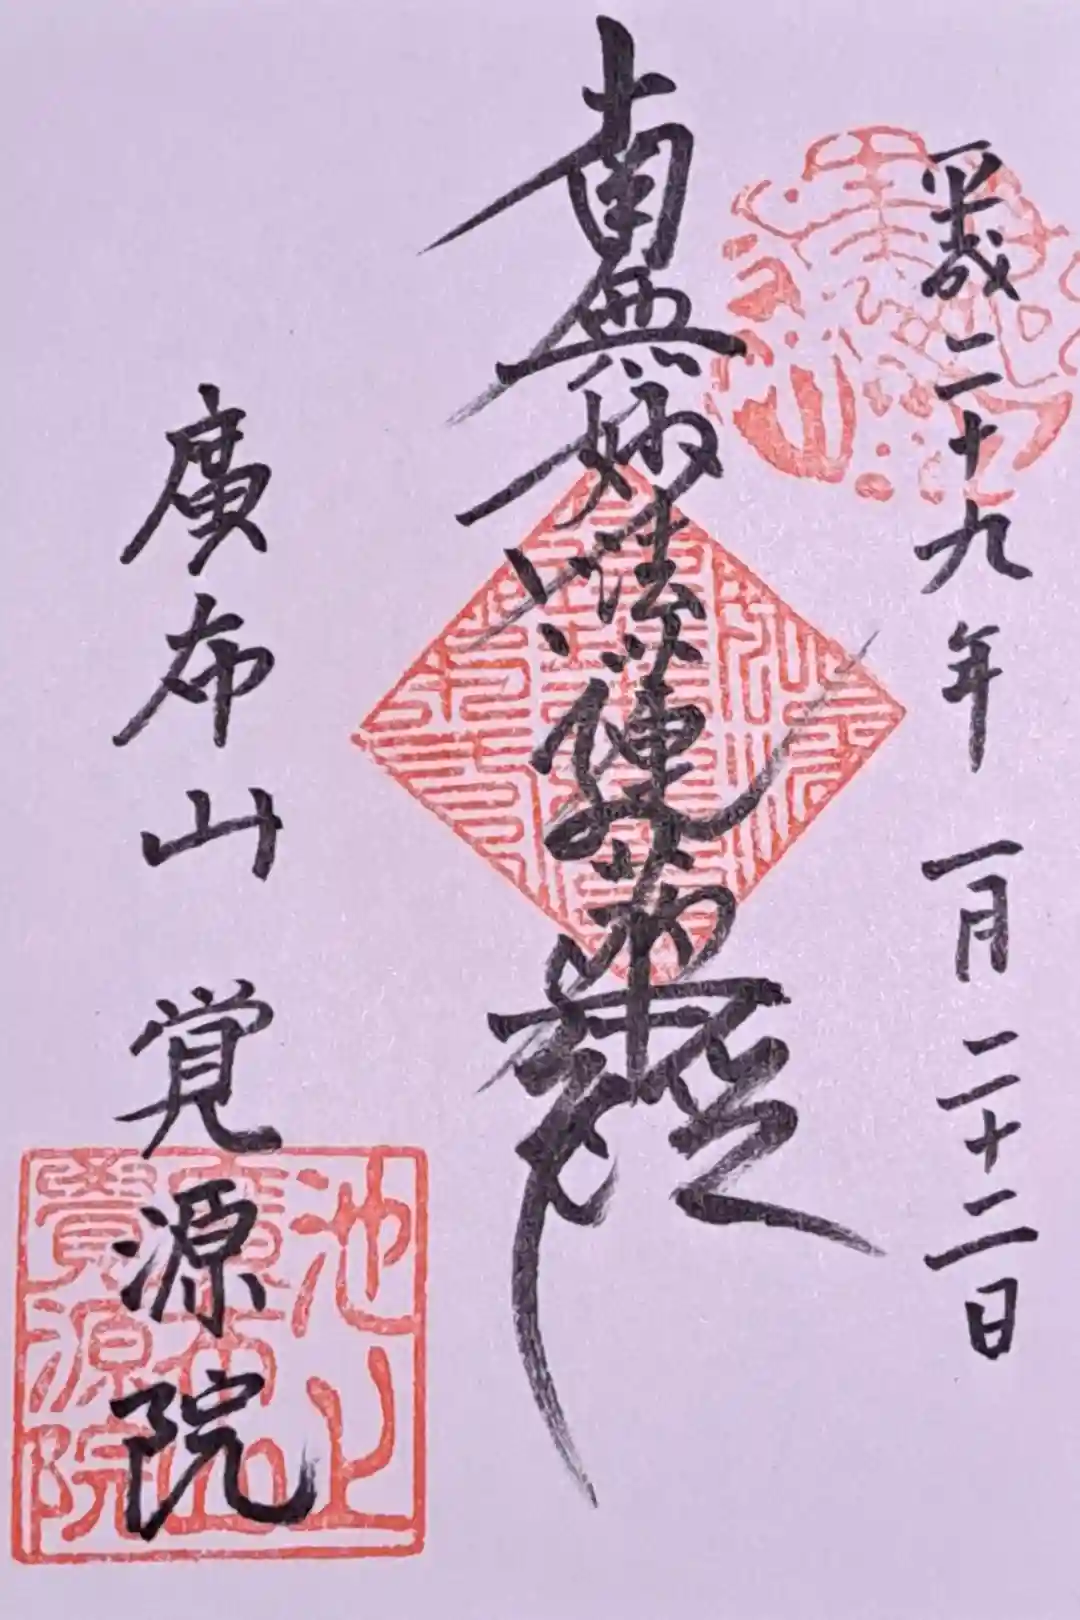 平成二十九年 一月二十二日
南無妙法蓮華経
廣布山 覚源院
池上
廣布山
覚源院